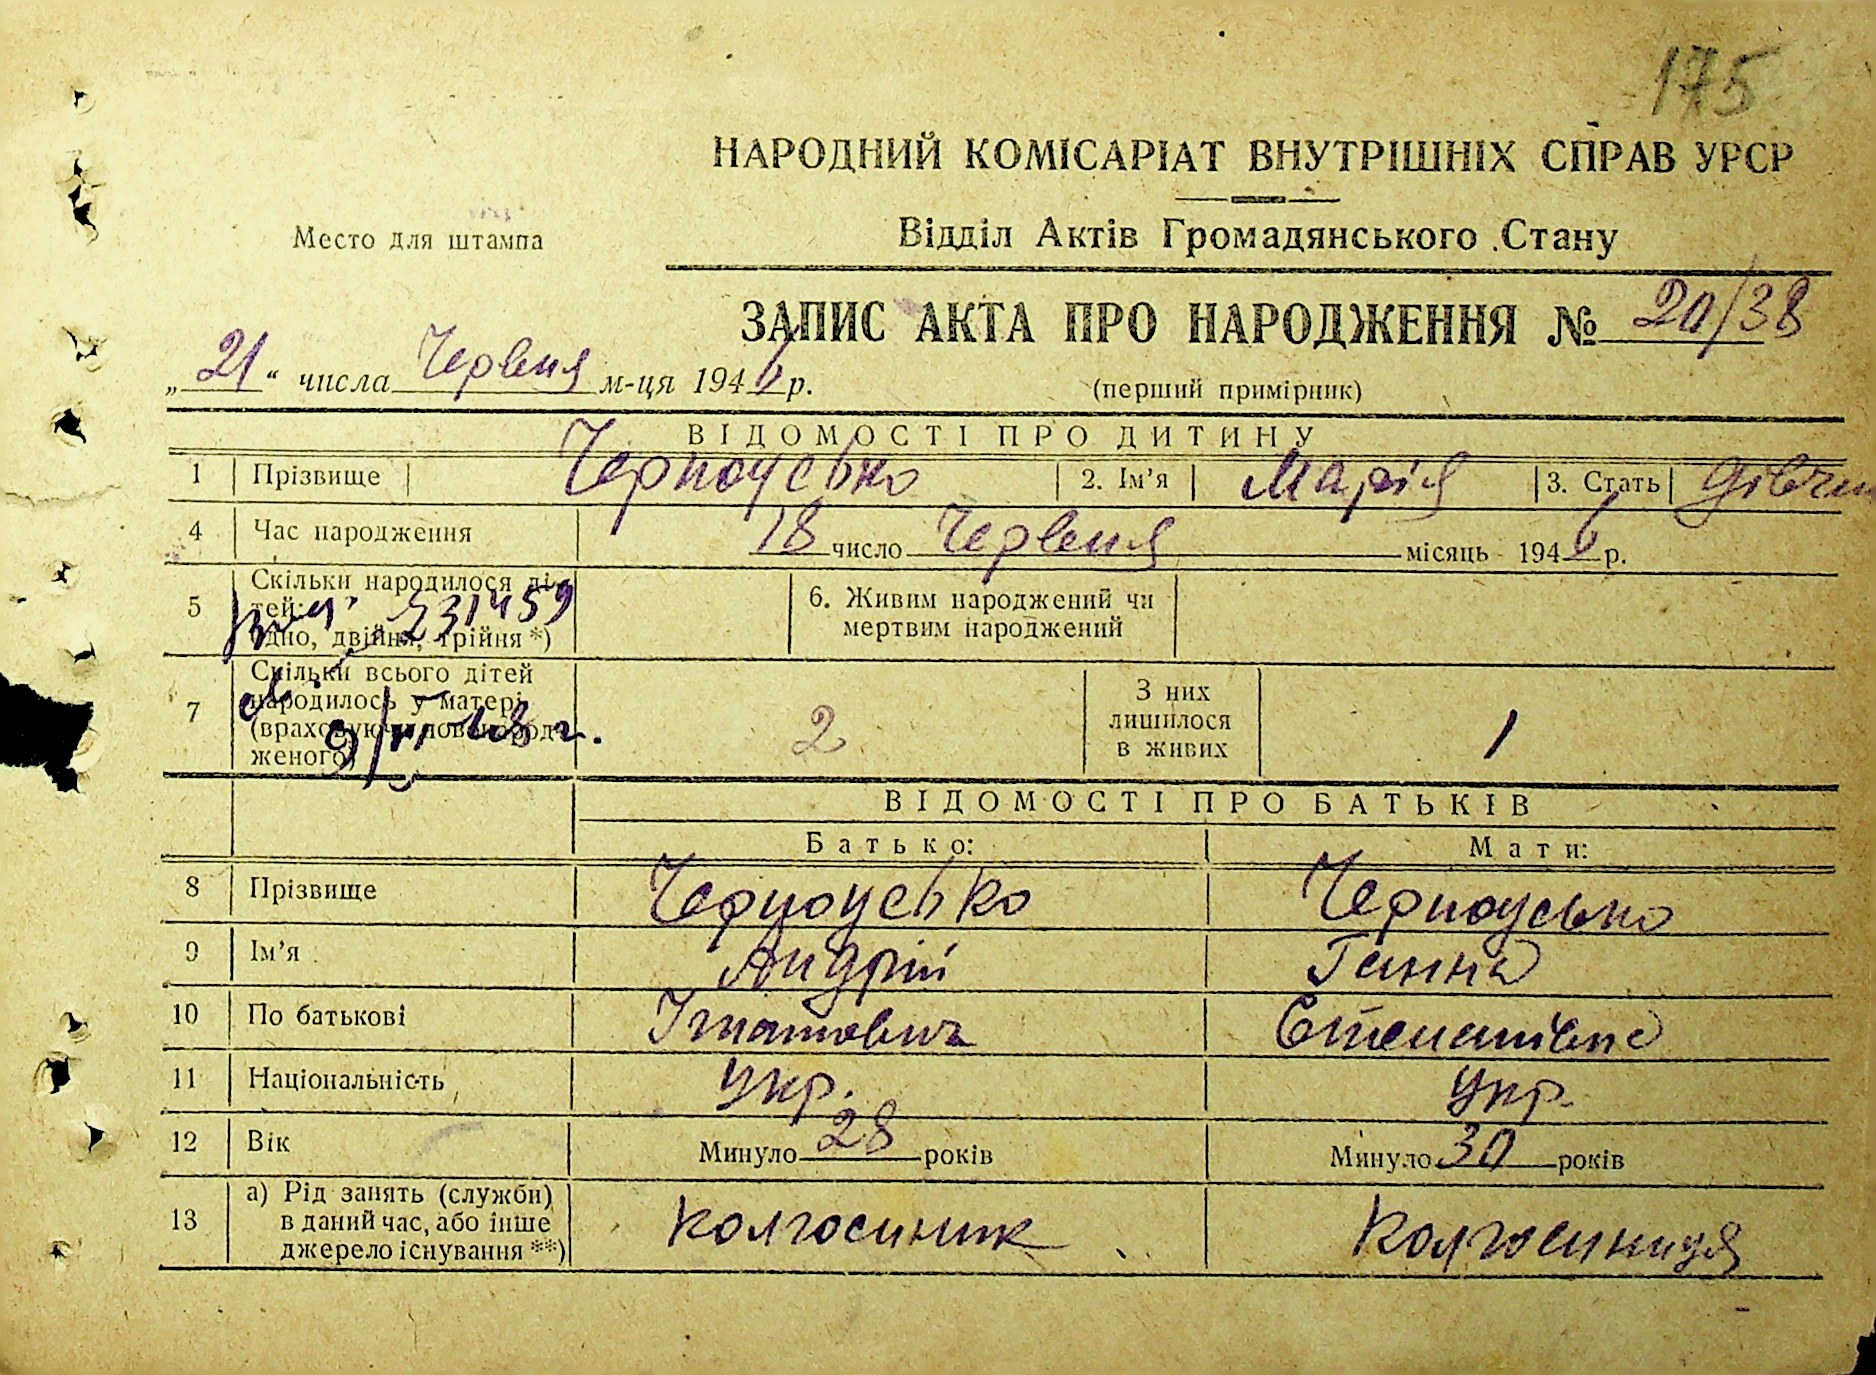 175
НАРОДНИЙ КОМІСАРІАТ ВНУТРІШНІХ СПРАВ УРСР
Место для штампа
Відділ Актів Громадянського Стану
ЗАПИС АКТА ПРО НАРОДЖЕННЯ № 20/38
„21“ числа Червня м-ця 1946 р. (перший примірник)
ВІДОМОСТІ ПРО ДИТИНУ
1 Прізвище Черноусько 2. Ім'я Марія 3. Стать
4 Час народження 18 число Червня місяць 1946 р.
5 Скільки народилося дітей: одно, двійня, трійня *) 6. Живим народжений чи мертвим народжений
231459
7 Скільки всього дітей народилось у матері (враховуючи новонародженого) 2 З них лишилося в живих 1
9/VI-48 г.
ВІДОМОСТІ ПРО БАТЬКІВ
Батько: Мати:
8 Прізвище Черноусько Черноусько
9 Ім'я Андрій Ганна
10 По батькові Ігнатович Степанівна
11 Національність Укр. Укр.
12 Вік Минуло 28 років Минуло 30 років
13 а) Рід занять (служби) в даний час, або інше джерело існування **) Колгоспник Колгоспниця